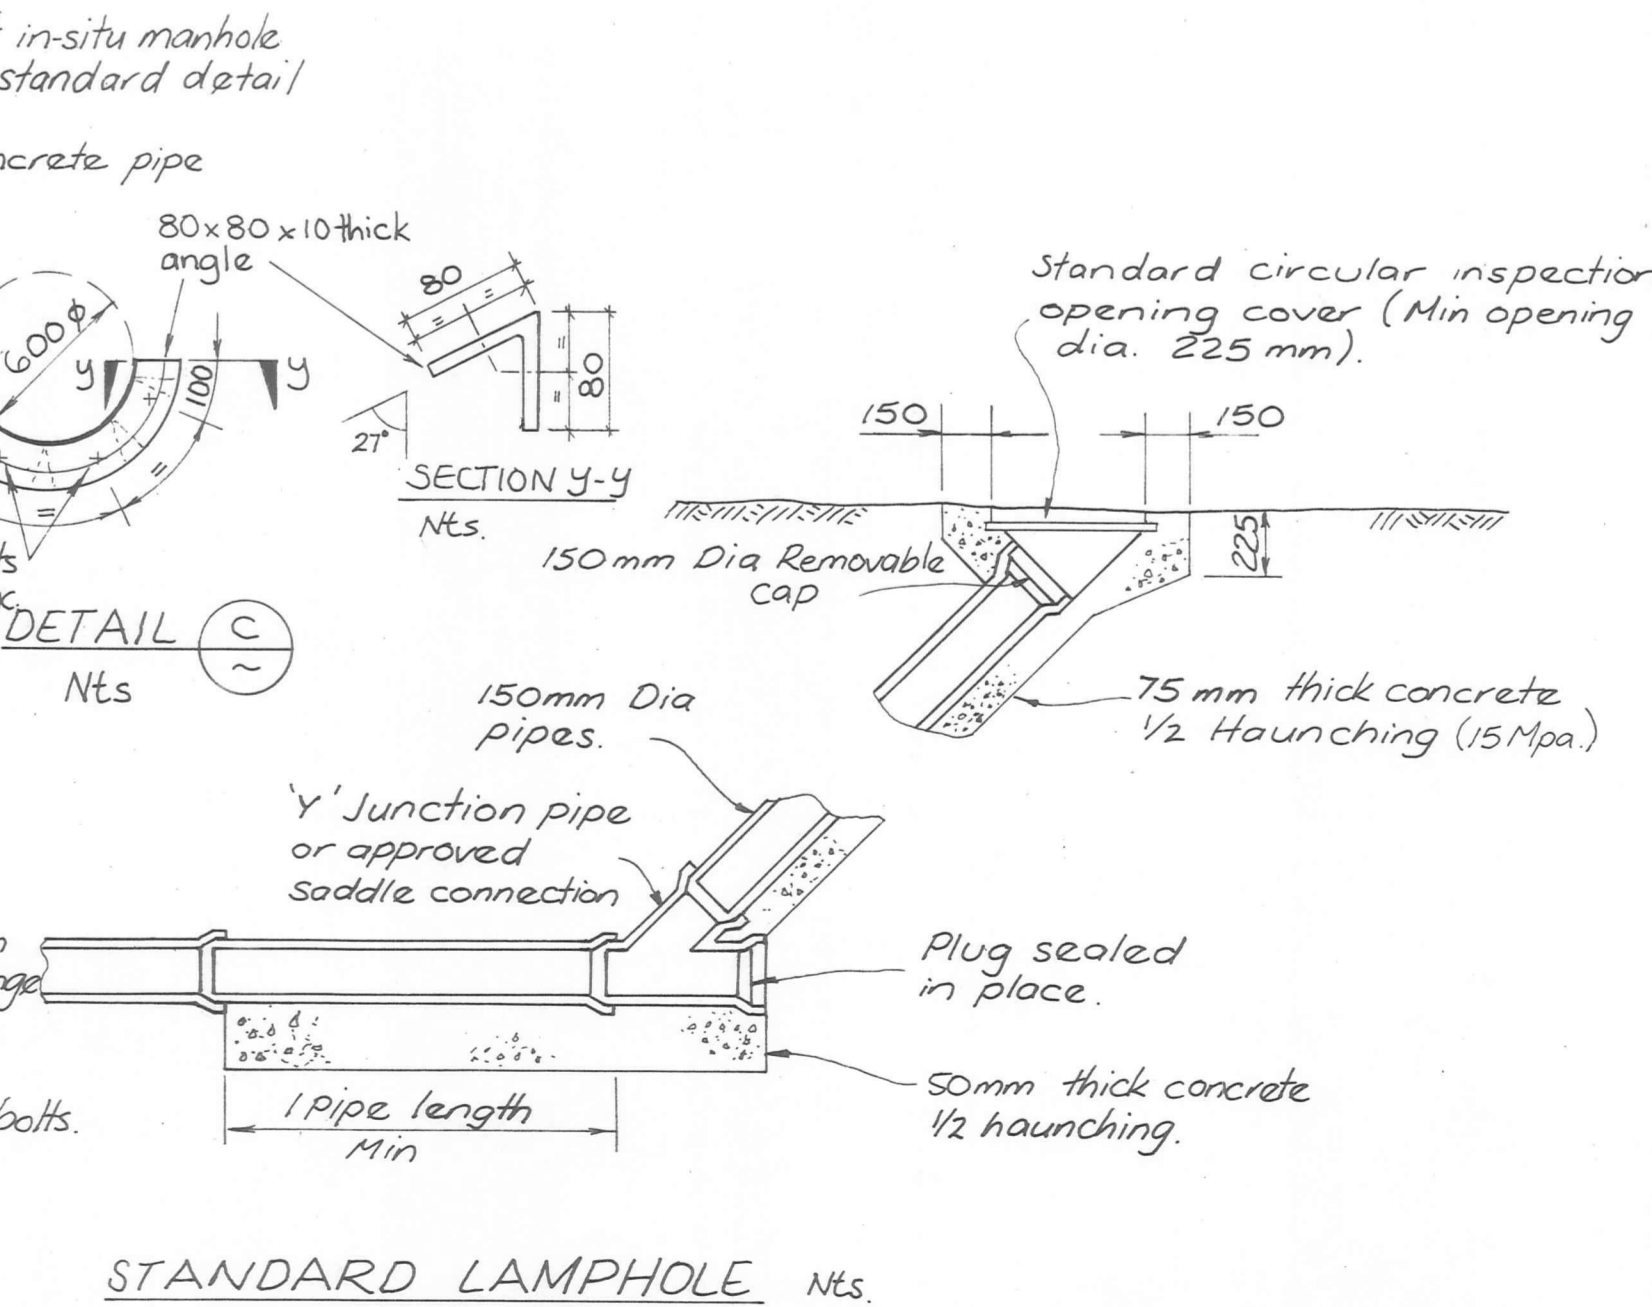 in-situ manhole
standard detail
pipe
80x80x10 thick
angle
600 φ
y
y
100
=
=
80
=
=
=
80
=
27°
SECTION y-y
Nts.
DETAIL
C
~
Nts
Standard circular inspection
opening cover (Min opening
dia. 225 mm).
150
150
225
150mm Dia Removable
cap
75 mm thick concrete
1/2 Haunching (15 Mpa.)
150mm Dia
pipes.
'Y' Junction pipe
or approved
saddle connection
Plug sealed
in place.
50mm thick concrete
1/2 haunching.
bolts.
1 pipe length
Min
STANDARD LAMPHOLE Nts.